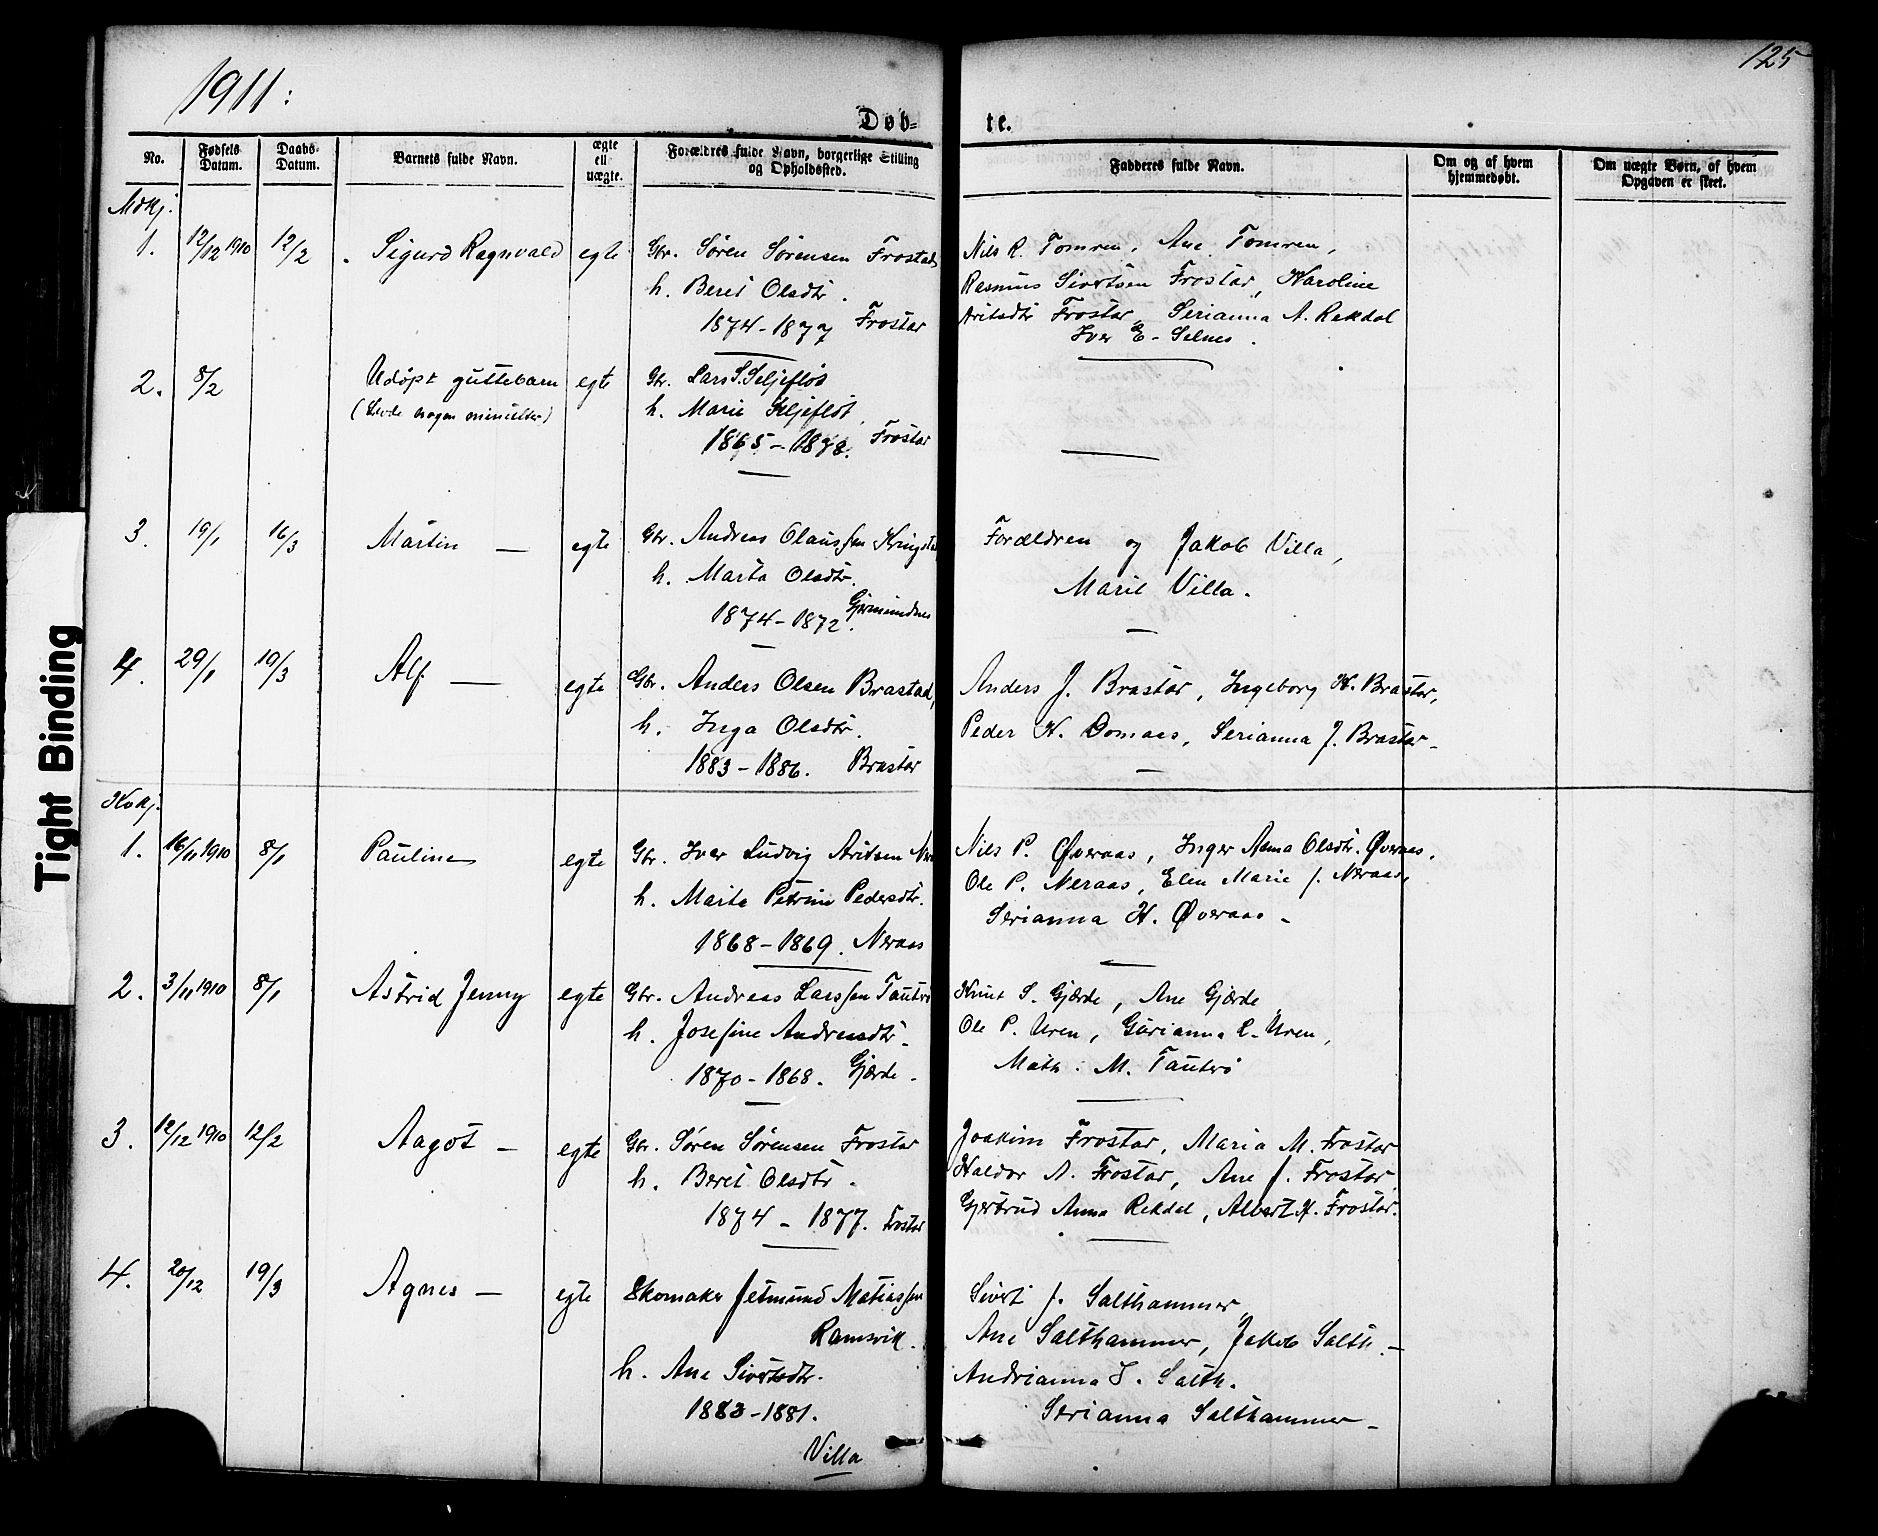 125
1911:
Døb-
te.
No.
Fødsels Datum.
Daabs-Datum.
Barnets fulde Navn.
ægte ell uægte.
Forældres fulde Navn, borgerlige Stilling og Opholdssted.
Fadderes fulde Navn.
Om og af hvem hjemmedøbt.
Om uægte Børn, af hvem Opgaven er skeet.
Mdkj.
1. 12/12 1910 12/2 Sigurd Ragnvald egte Gbr. Søren Sørensen Frostad
h. Berit Olsdtr.
1874-1877 Frostar
Nils R. Tomren, Ane Tomren,
Rasmus Sivertsen Frostar, Karoline
Aritsdtr Frostar, Serianna A. Rekdal
Iver E. Selnes.
2. 8/2 Udøpt guttebarn egte Gbr. Lars S. Seljeflot
(Levde nogen minutter) h. Marie Seljeflot,
1865-1878. Frostar
3. 19/1 16/3 Martin egte Gbr. Andreas Olaussen Kringsta
h. Marta Olsdtr.
1874-1872. Gjermundnes
Forældren og Jakob Villa,
Marit Villa.
4. 29/1 19/3 Alf egte Gbr. Anders Olsen Brastad,
h. Inga Olsdtr.
1883-1886. Brastar
Anders J. Brastar, Ingeborg K. Brastar,
Peder K. Domaas, Serianna J. Brastar
Kvkj.
1. 16/11 1910 8/1 Pauline egte Gbr. Iver Ludvig Aritsen
h. Marta Petrine Pedersdtr.
1868-1869. Neraas
Nils P. Øveraas, Inger Anna Olsdtr. Øveraas,
Ole P. Neraas, Elen Marie J. Neraas,
Serianna K. Øveraas
2. 3/11 1910 8/1 Astrid Jenny egte Gbr. Andreas Larssen Tautrø
h. Josefine Andreasdtr.
1870-1868. Gjærde.
Knut S. Gjærde, Ane Gjærde
Ole P. Uren, Gurianna L. Uren,
Math. M. Tautrø
3. 12/12 1910 12/2 Aagot egte Gbr. Søren Sørensen Frostar
h. Berit Olsdtr.
1874-1877. Frostar
Joakim Frostar, Maria M. Frostar
Haldor A. Frostar, Ane J. Frostar,
Gjertrud Anna Rekdal, Albert K. Frostar.
4. 20/12 19/3 Agnes egte Skomaker Jetmund Matiassen
Ramsvik.
h. Ane Sivertsdtr.
1883-1881.
Villa
Sivert J. Salthammer,
Ane Salthammer, Jakob Salth.
Andrianna S. Salth.
Serianna Salthammer
Tight Binding